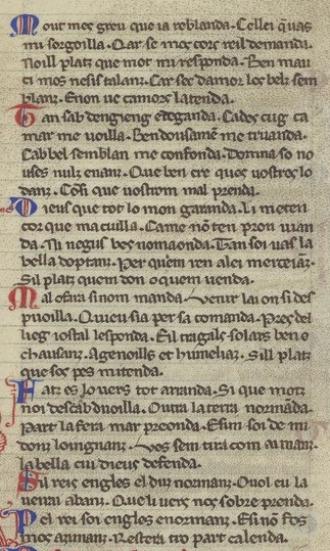 Mout mes greu que ia reblanda. Celleí qͣuas
mi sorgoilla. Qar se mes cors reil demanda.
Noill platz que mot mi responda. Ben mau
ci mos nesis talanz. Car sec damor los belz sem
blanz. Enon ve camors latenda.
Tan sab dengieng ede ganda. Cades cug ca
mar me voilla. Ben dousamē me truanda.
Cab bel semblan me confonda. Domna so no
us es nulz enanz. Que ben cre ques vostres lo
danz. Com que vostrom mal prenda.
Dieus que tot lo mon garanda. Li meten
cor que macuilla. Came nō ten prou uian
da. Ni negus bes nomaonda. Tan soi vas la
bella doptanz. Per quem ren alei merceiāz.
Sil platz quem don o quem venda.
Mal ofara si nom manda. Venir lai on si des
puoilla. Qu eu sia per sa comanda. Pres del
lieg iostal lesponda. Eil tragals solars ben o
chausanz. Agenoills et humelianz. Sill platz
que sos pes mi tenda.
Fatz es lo vers tot aranda. Si que motz
noi descabduoilla. Outra la terra normāda.
Part la fera mar preonda. Esim soi de mi
donz loingnanz. Vas sem tira com aimanz.
la bella cui dieus defenda.
Sil reis engles el duc normanz. O vol eu la
veirai abanz. Que li vers nos sobre prenda.
Pel rei soi engles enormanz. E si nō fos
mos azimanz. Restera tro part calenda.